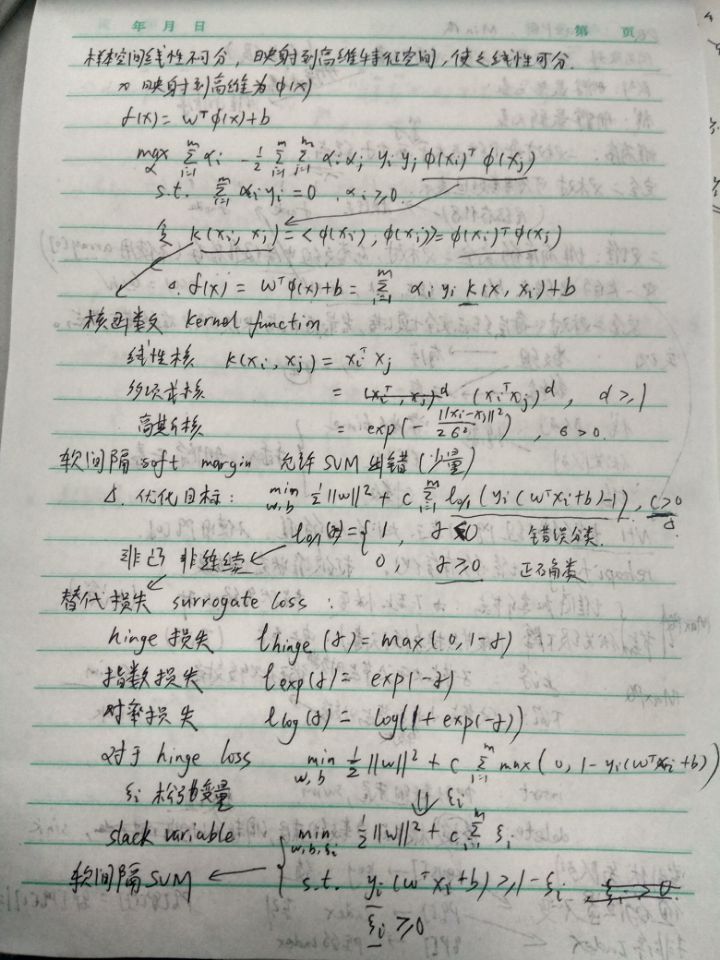 年 月 日 第 页
样本空间线性不可分，映射到高维特征空间，使之线性可分.
x 映射到高维为 φ(x)
f(x) = wᵀφ(x)+b
max_α Σ_{i=1}^m αi - 1/2 Σ_{i=1}^m Σ_{j=1}^m αi αj yi yj φ(xi)ᵀ φ(xj)
s.t. Σ_{i=1}^m αi yi = 0 , αi ≥ 0.
令 k(xi, xj) = <φ(xi), φ(xj)> = φ(xi)ᵀ φ(xj)
f(x) = wᵀφ(x)+b = Σ_{i=1}^m αi yi k(x, xi)+b
核函数 kernel function
线性核 k(xi, xj) = xiᵀ xj
多项式核 = (xiᵀ xj)^d , d ≥ 1
高斯核 = exp(- ||xi-xj||² / 2σ²) , σ > 0
软间隔 soft margin 允许 SVM 出错 (少量)
优化目标: min_{w,b} 1/2||w||² + C Σ_{i=1}^m l0/1 (yi(wᵀxi+b)-1), C>0
l0/1(z) = { 1, z<0 错误分类
0, z≥0 正确类
非凸 非连续
替代损失 surrogate loss :
hinge 损失 l_hinge(z) = max(0, 1-z)
指数损失 l_exp(z) = exp(-z)
对率损失 l_log(z) = log(1+exp(-z))
对于 hinge loss min_{w,b} 1/2||w||² + C Σ_{i=1}^m max(0, 1-yi(wᵀxi+b))
ξi 松弛变量 ⇓ ξi
slack variable min_{w,b,ξi} 1/2||w||² + C Σ_{i=1}^m ξi
软间隔SVM ← { s.t. yi(wᵀxi+b) ≥ 1-ξi
ξi ≥ 0